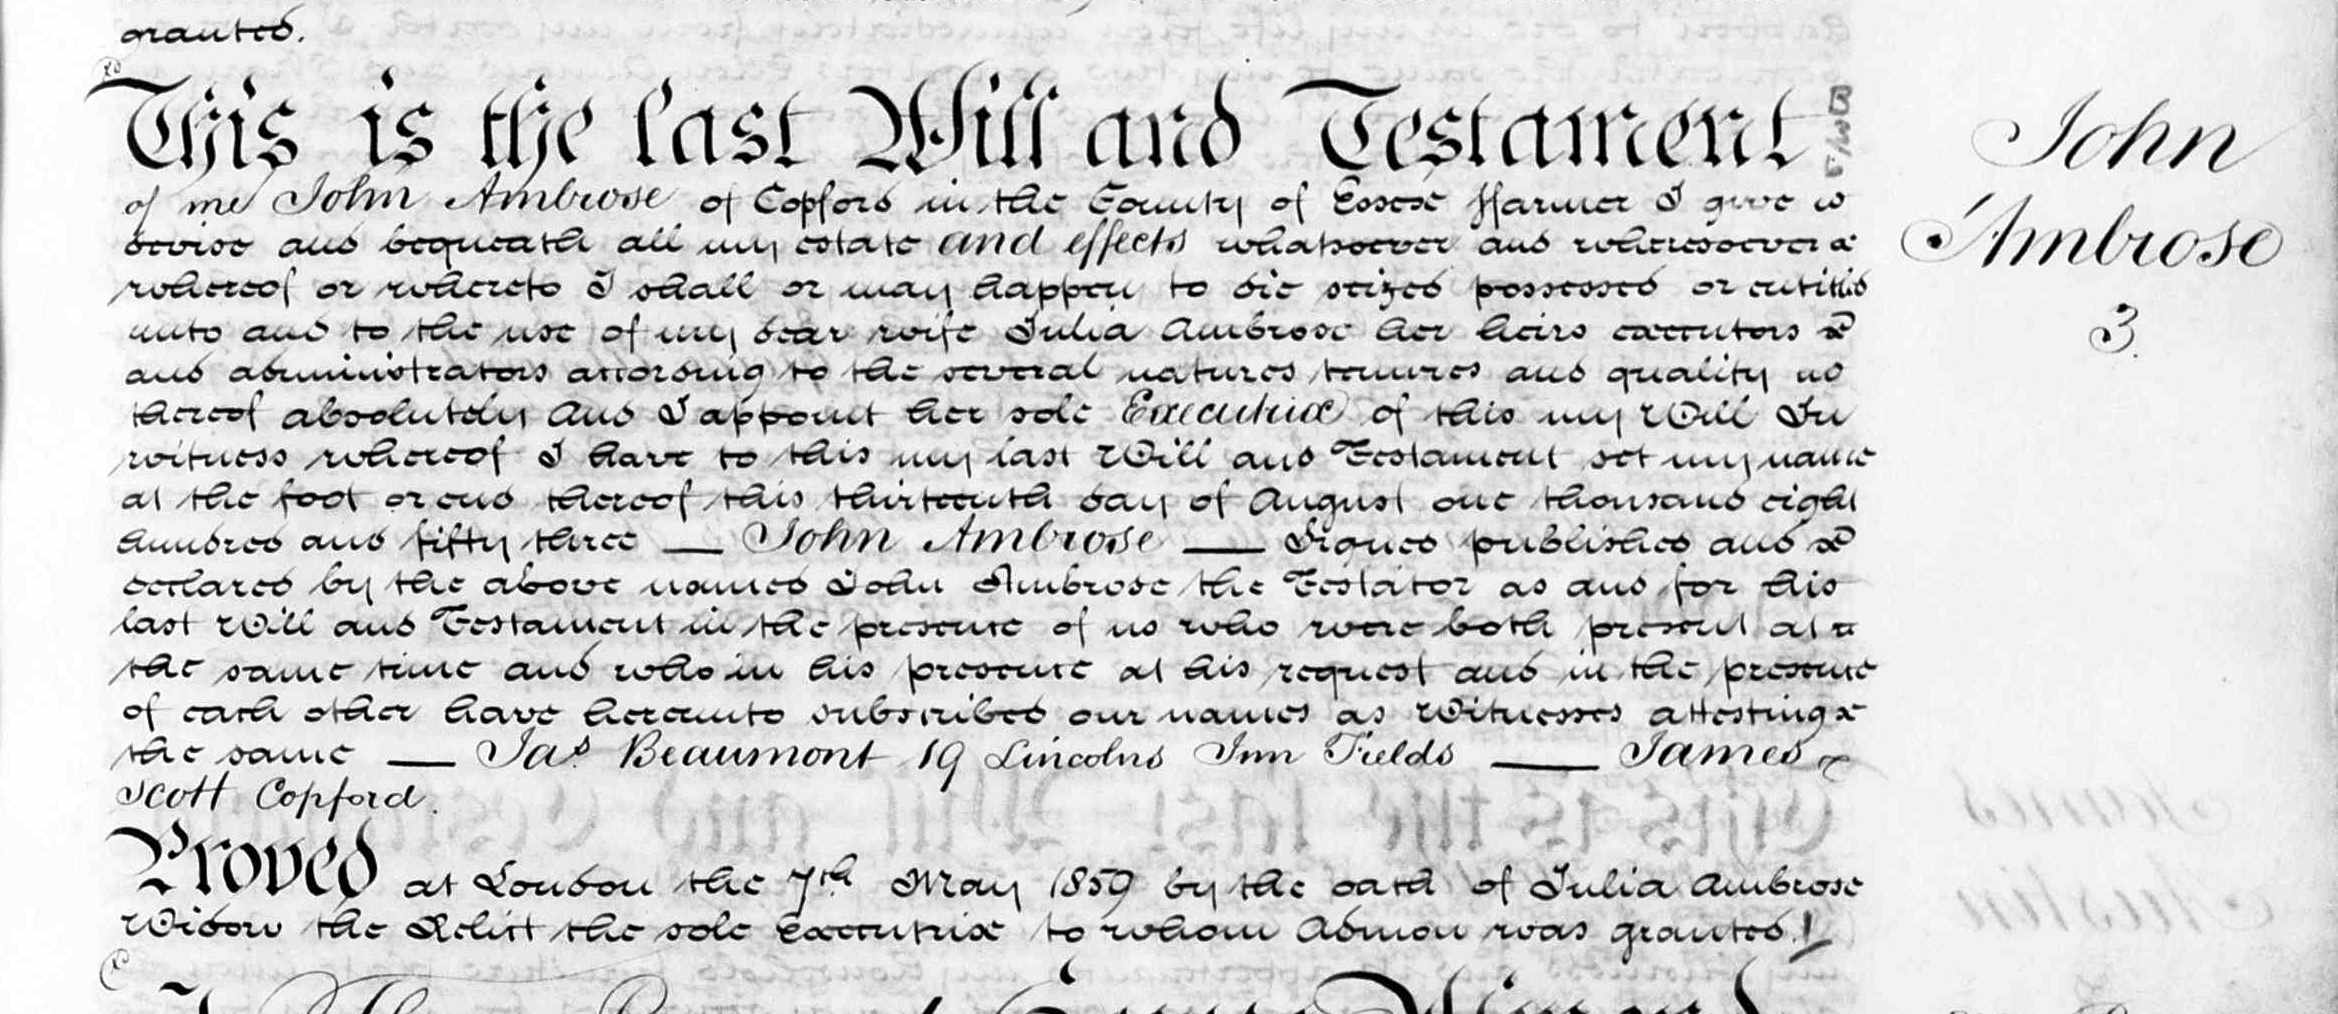 granted.
This is the last Will and Testament
of me John Ambrose of Copford in the County of Essex Farmer I give
devise and bequeath all my estate and effects whatsoever and wheresoever
whereof or whereto I shall or may happen to die seized possessed or entitled
unto and to the use of my dear wife Julia Ambrose her heirs executors
and administrators according to the several natures tenures and quality
thereof absolutely And I appoint her sole Executrix of this my Will In
witness whereof I have to this my last Will and Testament set my name
at the foot or end thereof this thirteenth day of August one thousand eight
hundred and fifty three — John Ambrose — Signed published and
declared by the above named John Ambrose the Testator as and for his
last Will and Testament in the presence of us who were both present at
the same time and who in his presence at his request and in the presence
of each other have hereunto subscribed our names as Witnesses attesting
the same — Jas. Beaumont 19 Lincolns Inn Fields — James
Scott Copford.
Proved at London the 7th May 1859 by the oath of Julia Ambrose
Widow the Relict the sole Executrix to whom Admon was granted.
John
Ambrose
3.